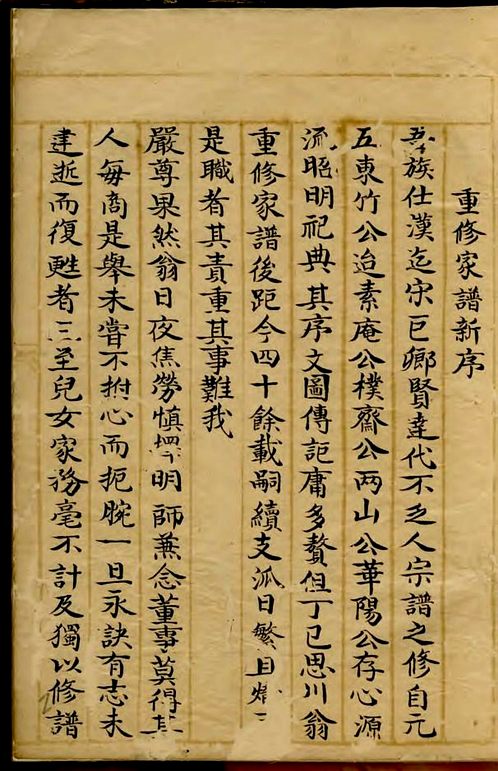 重修家譜新序
吾族仕漢迄宋巨鄉賢達代不乏人宗譜之修自元
五東竹公迨素庵公樸齋公两山公華陽公存心源
流昭明祀典其序文圖傳詎庸多贅但丁巳思川翁
重修家譜後距今四十餘載嗣續支派日繁且
是職者其責重其事難我
嚴尊果然翁日夜焦勞慎擇明師兼念董事莫得其
人每商是舉未嘗不拊心而扼腕一旦永訣有志未
逮逝而復甦者三至兒女家務毫不計及獨以修譜